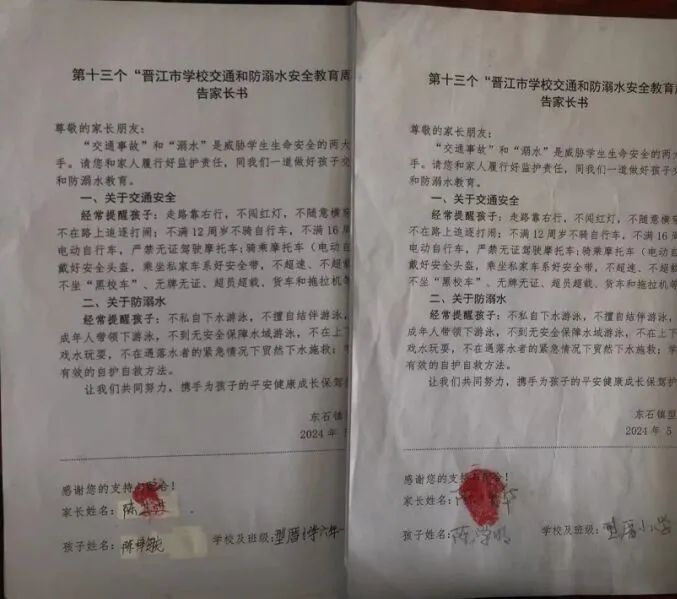 第十三个“晋江市学校交通和防溺水安全教育周
告家长书
尊敬的家长朋友：
“交通事故”和“溺水”是威胁学生生命安全的两大
手。请您和家人履行好监护责任，同我们一道做好孩子交
和防溺水教育。
一、关于交通安全
经常提醒孩子：走路靠右行，不闯红灯，不随意横穿
不在路上追逐打闹；不满12周岁不骑自行车，不满16周
电动自行车，严禁无证驾驶摩托车；骑乘摩托车（电动自
戴好安全头盔，乘坐私家车系好安全带，不超速、不超
不坐“黑校车”、无牌无证、超员超载、货车和拖拉机等
二、关于防溺水
经常提醒孩子：不私自下水游泳，不擅自结伴游泳，
成年人带领下游泳，不到无安全保障水域游泳，不在上下
戏水玩耍，不在遇落水者的紧急情况下贸然下水施救；学
有效的自护自救方法。
让我们共同努力，携手为孩子的平安健康成长保驾护
东石镇
2024年
感谢您的支持与配合！
家长姓名：陈
孩子姓名：陈 学校及班级：型厝小学六年一
第十三个“晋江市学校交通和防溺水安全教育周
告家长书
尊敬的家长朋友：
“交通事故”和“溺水”是威胁学生生命安全的两大
手。请您和家人履行好监护责任，同我们一道做好孩子交
和防溺水教育。
一、关于交通安全
经常提醒孩子：走路靠右行，不闯红灯，不随意横穿
不在路上追逐打闹；不满12周岁不骑自行车，不满16周
电动自行车，严禁无证驾驶摩托车；骑乘摩托车（电动自
戴好安全头盔，乘坐私家车系好安全带，不超速、不超
不坐“黑校车”、无牌无证、超员超载、货车和拖拉机等
二、关于防溺水
经常提醒孩子：不私自下水游泳，不擅自结伴游泳，
成年人带领下游泳，不到无安全保障水域游泳，不在上下
戏水玩耍，不在遇落水者的紧急情况下贸然下水施救；学
有效的自护自救方法。
让我们共同努力，携手为孩子的平安健康成长保驾护
东石镇型
2024年5
感谢您的支持与配合！
家长姓名：陈 华
孩子姓名：陈学明 学校及班级：型厝小学